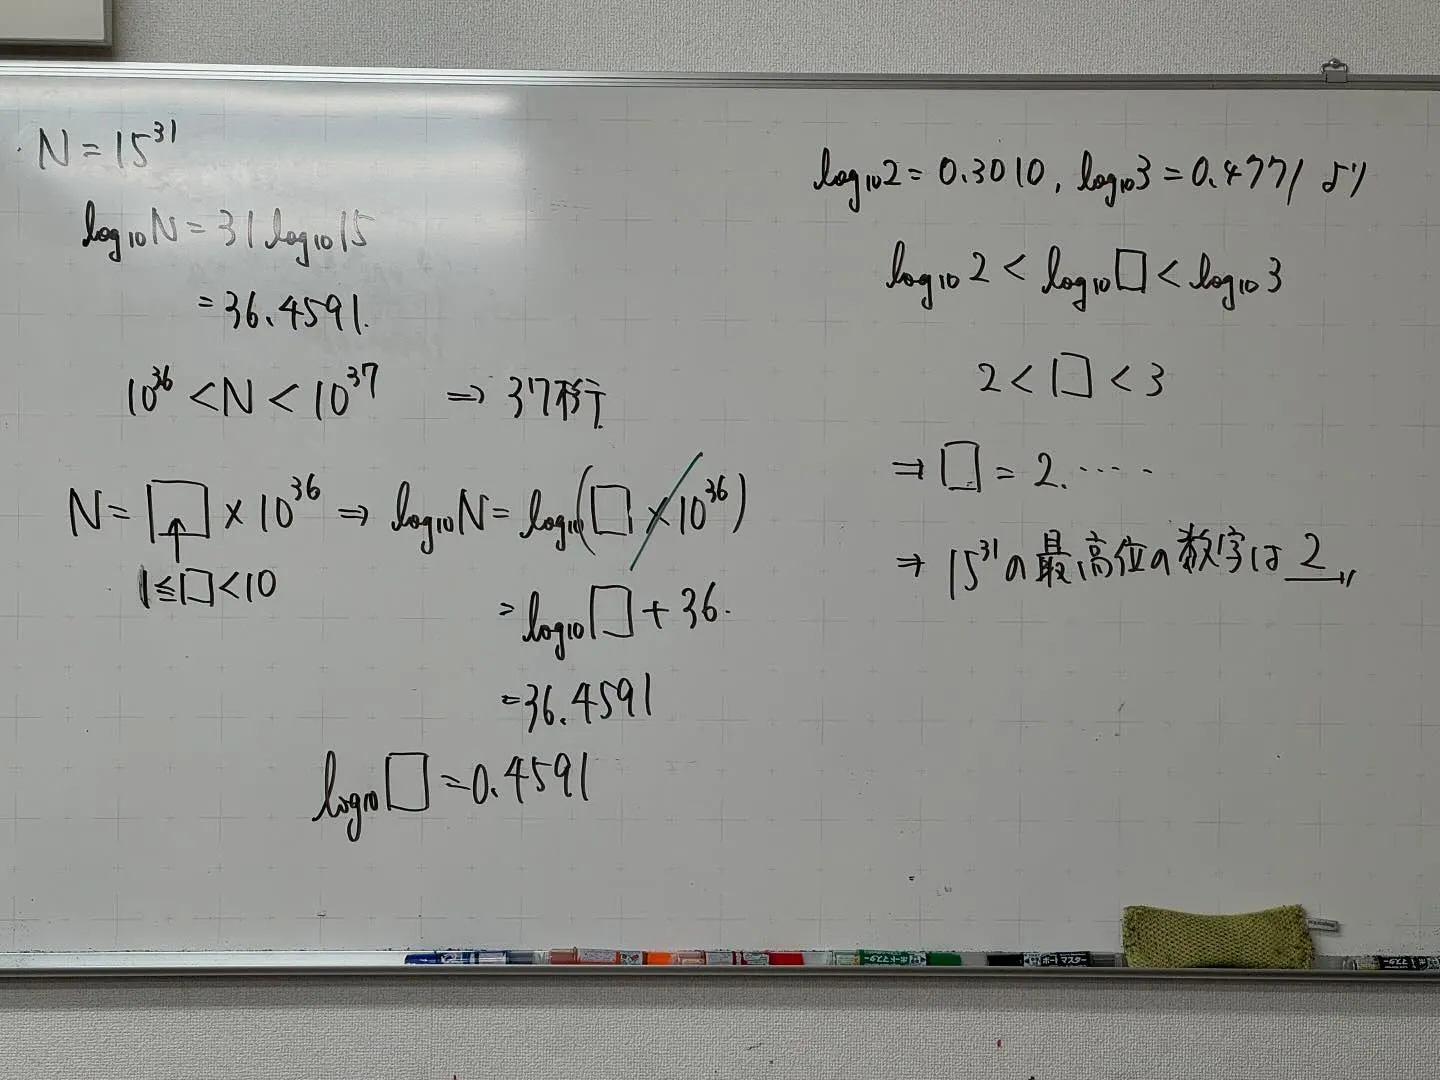 N = 15³¹
log₁₀N = 31 log₁₀15
= 36.4591.
10³⁶ < N < 10³⁷ ⇒ 37桁
N = □ × 10³⁶ ⇒ log₁₀N = log₁₀(□ × 10³⁶)
↑
1 ≦ □ < 10
= log₁₀□ + 36.
= 36.4591
log₁₀□ = 0.4591
log₁₀2 = 0.3010, log₁₀3 = 0.4771 より
log₁₀2 < log₁₀□ < log₁₀3
2 < □ < 3
⇒ □ = 2.·····
⇒ 15³¹の最高位の数字は 2
ボードマスター
ボードマスター